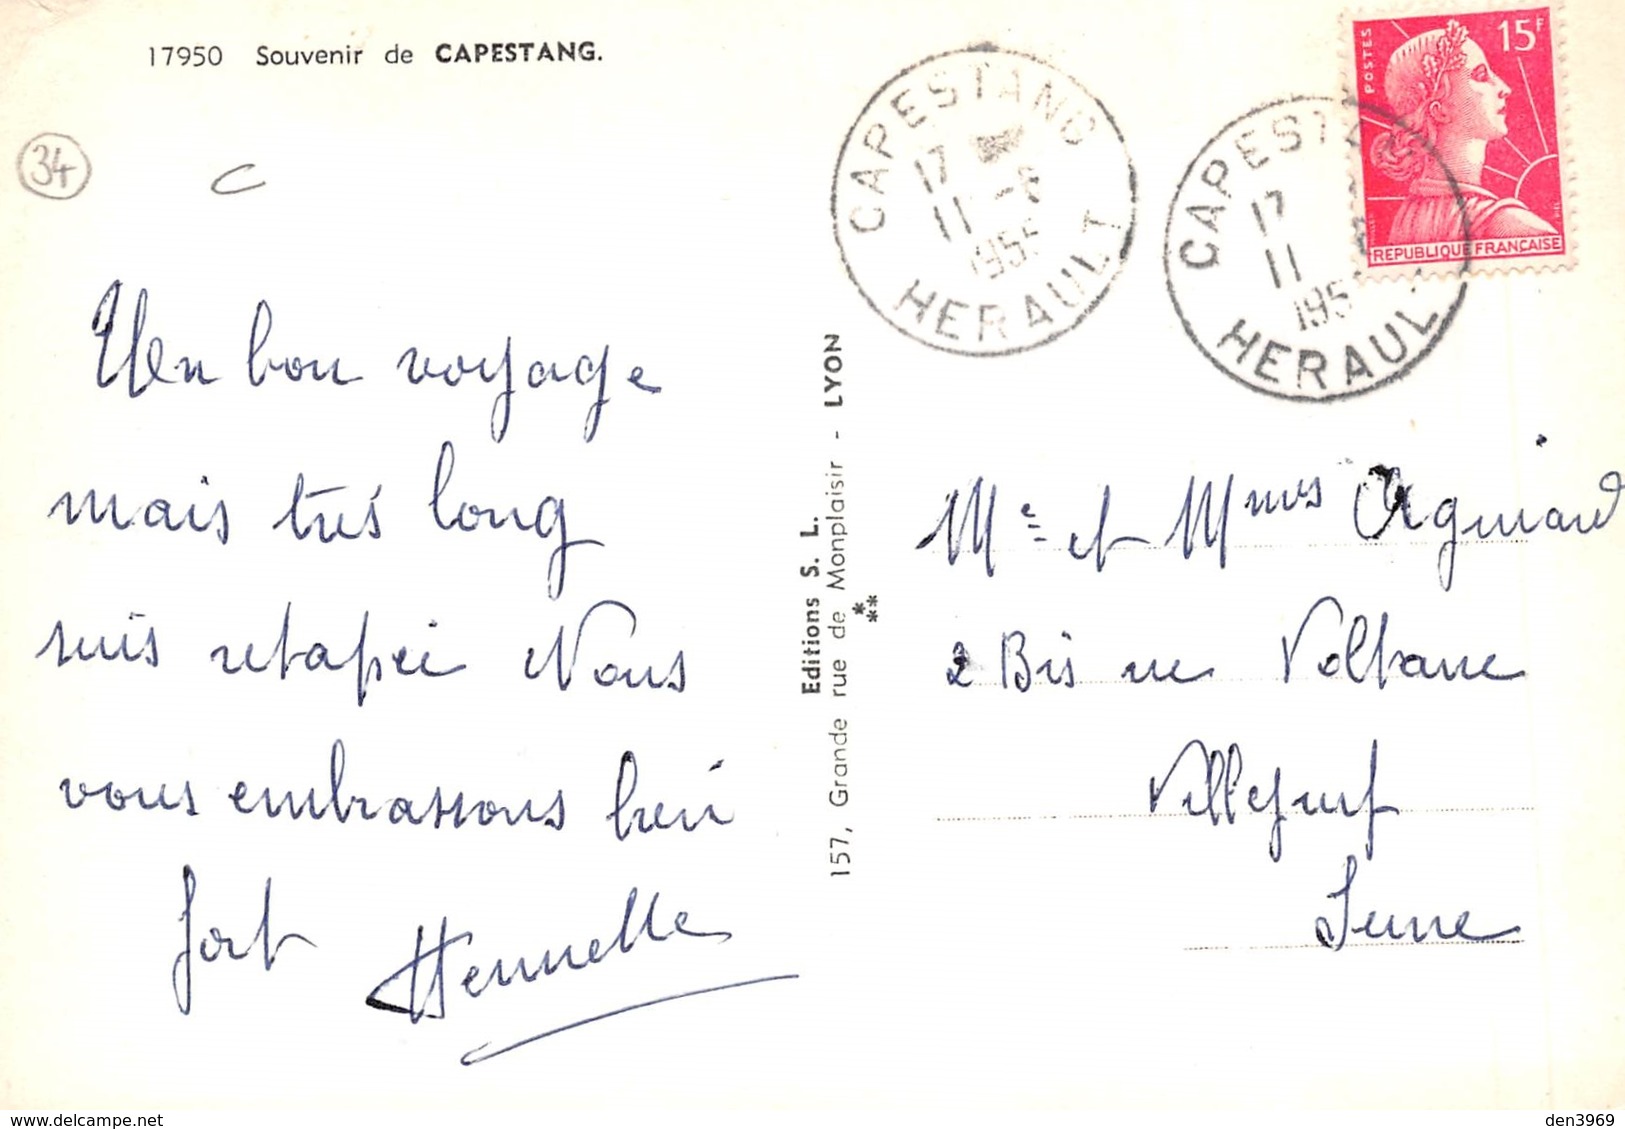 17950 Souvenir de CAPESTANG.
34
Un bon voyage
mais très long
suis retapée Nous
vous embrassons bien
fort Hennette
Editions S. L.
157, Grande rue de Monplaisir - LYON
CAPESTANG
17
11 -
195
HERAULT
CAPESTAN
17
11
195
HERAUL
POSTES
15F
REPUBLIQUE FRANÇAISE
Mr et Mmes
2 Bis rue Voltaire
Villejuif
Seine
den3969